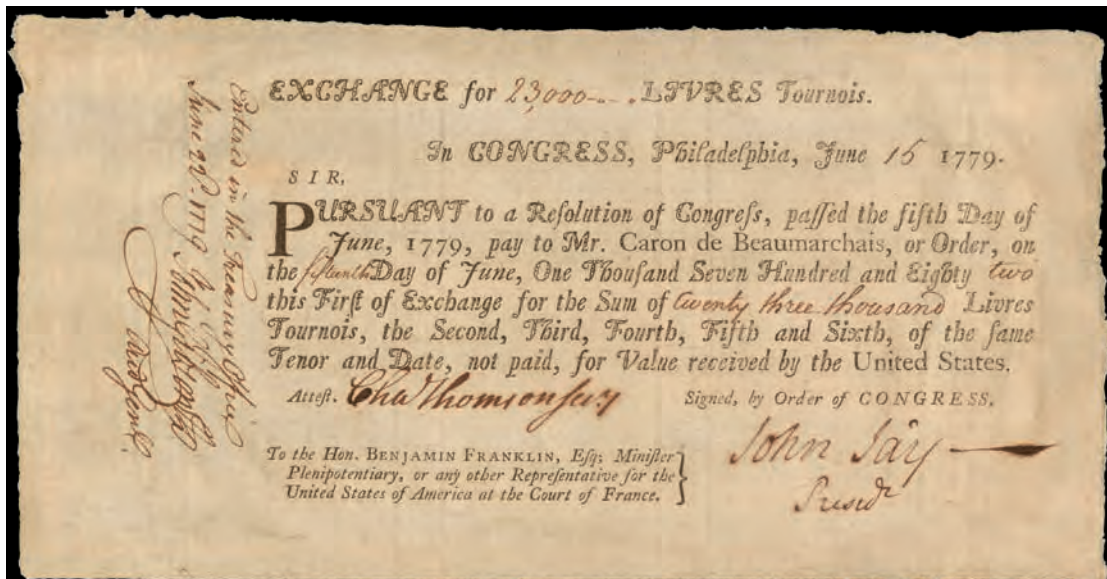 EXCHANGE for 23,000--. LIVRES Tournois.
In CONGRESS, Philadelphia, June 15 1779.
SIR,
PURSUANT to a Reſolution of Congreſs, paſſed the fifth Day of
June, 1779, pay to Mr. Caron de Beaumarchais, or Order, on
the fifteenth Day of June, One Thouſand Seven Hundred and Eighty two
this Firſt of Exchange for the Sum of twenty three thouſand Livres
Tournois, the Second, Third, Fourth, Fifth and Sixth, of the ſame
Tenor and Date, not paid, for Value received by the United States.
Atteſt. Cha Thomson secy
Signed, by Order of CONGRESS.
John Jay
Presidt
To the Hon. BENJAMIN FRANKLIN, Eſq; Miniſter
Plenipotentiary, or any other Repreſentative for the
United States of America at the Court of France.
Entered in the Treasury Office
June 22d. 1779